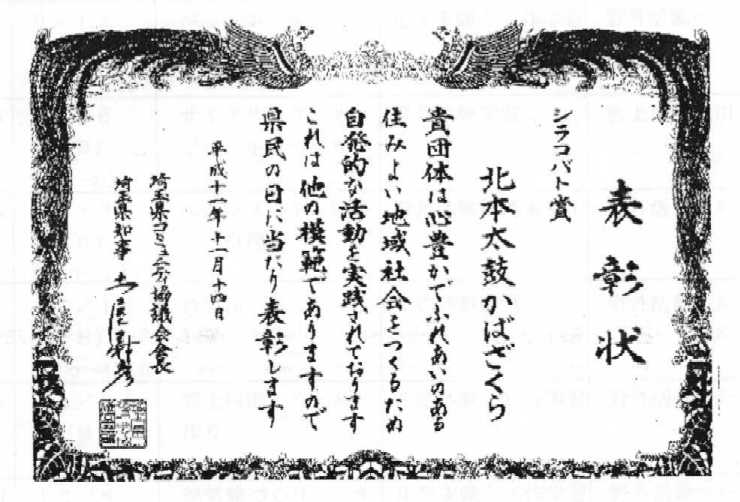 表彰状
シラコバト賞
北本太鼓かばざくら
貴団体は心豊かでふれあいのある
住みよい地域社会をつくるため
自発的な活動を実践されております
これは他の模範でありますので
県民の日に当たり表彰します
平成十一年十一月十四日
埼玉県コミュニティ協議会会長
埼玉県知事 土屋義彦